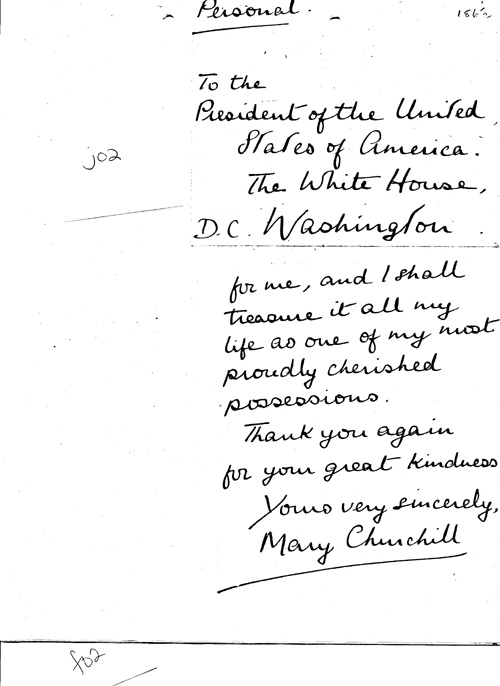 Personal.
j02
To the
President of the United
States of America.
The White House,
D.C. Washington.
for me, and I shall
treasure it all my
life as one of my most
proudly cherished
possessions.
Thank you again
for your great kindness
Yours very sincerely,
Mary Churchill
f02